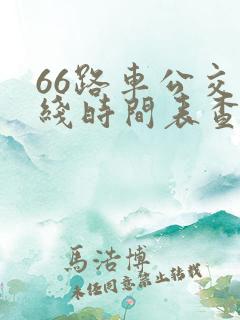 66路車公交
綫時間表查
馬浩博
未經同意禁止轉載